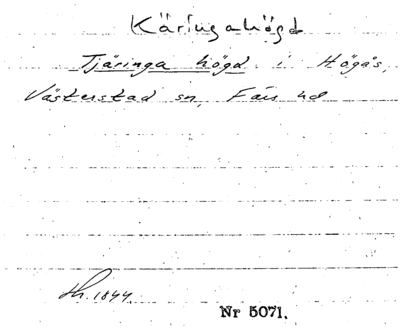 Käringahögd
Tjäringa högd i Högås,
Västerstad sn, Färs hd
1844
Nr 5071.